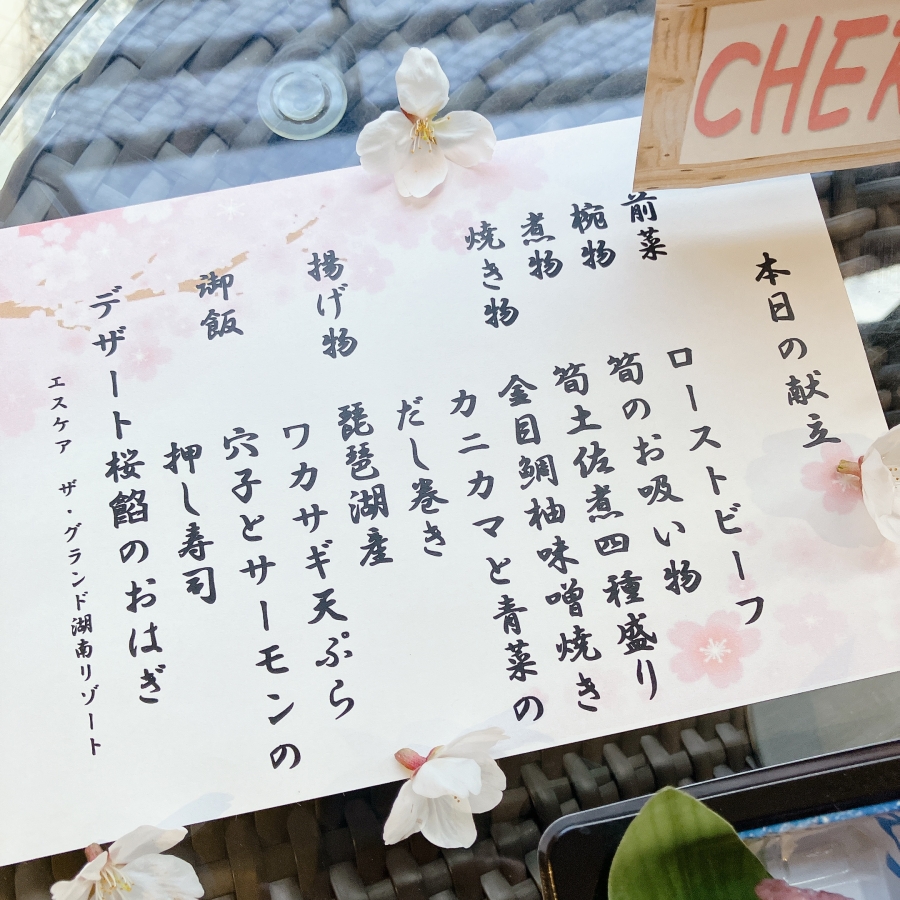 CHER
本日の献立
前菜 ローストビーフ
椀物 筍のお吸い物
煮物 筍土佐煮四種盛り
焼き物 金目鯛柚味噌焼き
カニカマと青菜の
だし巻き
揚げ物 琵琶湖産
ワカサギ天ぷら
御飯 穴子とサーモンの
押し寿司
デザート桜餡のおはぎ
エスケア ザ・グランド湖南リゾート